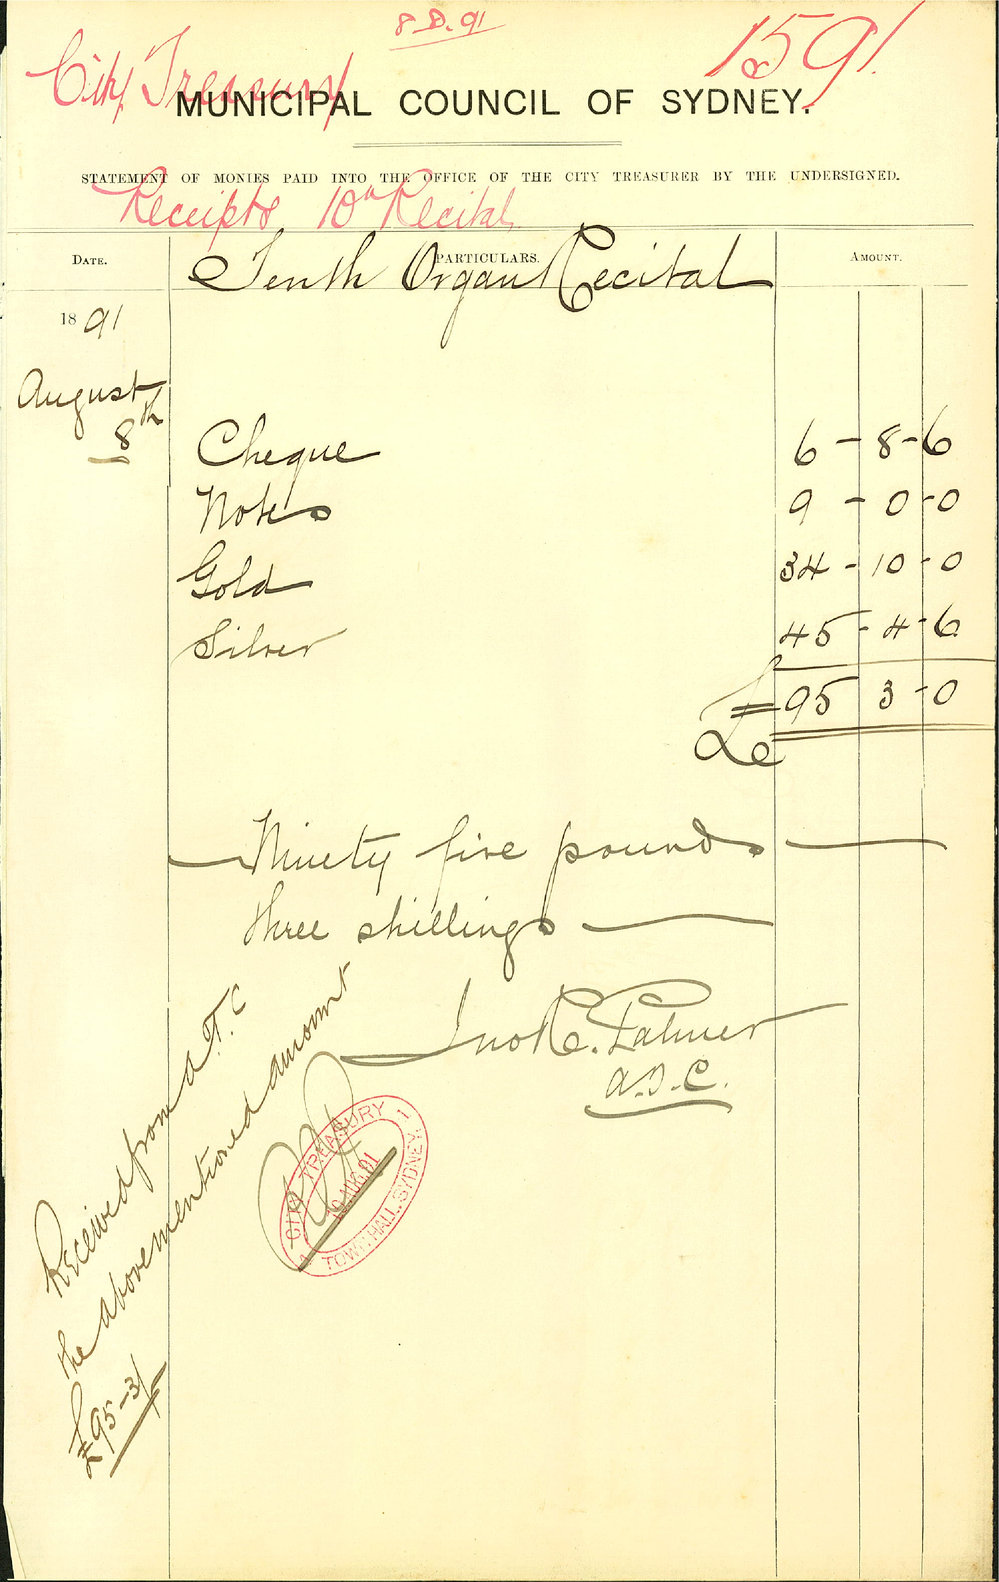 8.8.91
1591.
City Treasury
MUNICIPAL COUNCIL OF SYDNEY.
STATEMENT OF MONIES PAID INTO THE OFFICE OF THE CITY TREASURER BY THE UNDERSIGNED.
Receipts 10th Recital
DATE. PARTICULARS. AMOUNT.
Tenth Organ Recital
1891
August
8th
Cheque 6-8-6
Notes 9-0-0
Gold 34-10-0
Silver 45-4-6
£95 3-0
Ninety five pounds
three shillings
Jno R. Palmer
A.T.C.
Received from A.T.C
the abovementioned amount
£95-3/-
CITY TREASURY
10 AUG.91
TOWN HALL, SYDNEY.